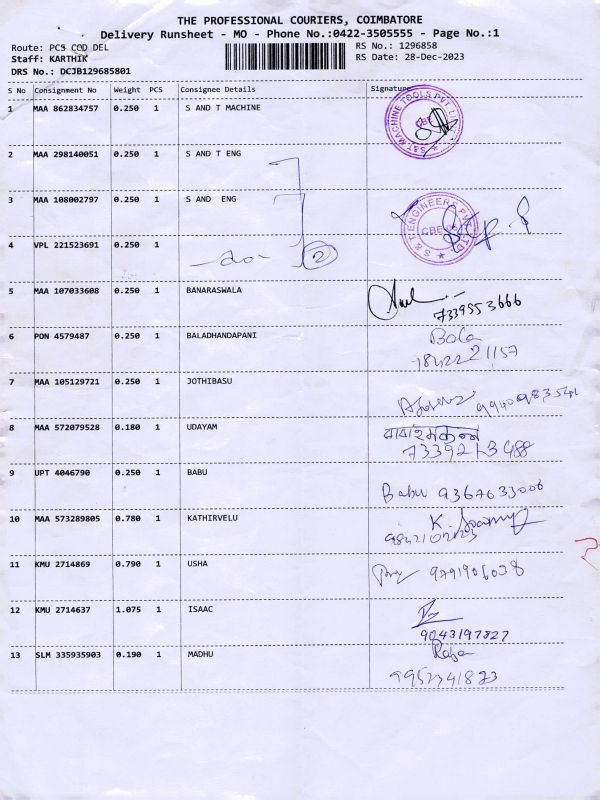 THE PROFESSIONAL COURIERS, COIMBATORE
Delivery Runsheet - MO - Phone No.:0422-3505555 - Page No.:1
Route: PCS COD DEL RS No.: 1296858
Staff: KARTHIK RS Date: 28-Dec-2023
DRS No.: DCJB129685801
S No Consignment No Weight PCS Consignee Details Signature
1 MAA 862834757 0.250 1 S AND T MACHINE
S&T MACHINE TOOLS PVT LTD CBE
2 MAA 298140051 0.250 1 S AND T ENG
3 MAA 108002797 0.250 1 S AND ENG
S & T ENGINEERS PVT LTD CBE
4 VPL 221523691 0.250 1
-do- 2
5 MAA 107033608 0.250 1 BANARASWALA
7339553666
6 PON 4579487 0.250 1 BALADHANDAPANI Bala
7 MAA 105129721 0.250 1 JOTHIBASU
8 MAA 572079528 0.180 1 UDAYAM
9 UPT 4046790 0.250 1 BABU
Babu 9367633006
10 MAA 573289805 0.780 1 KATHIRVELU
11 KMU 2714869 0.790 1 USHA
9791906038
12 KMU 2714637 1.075 1 ISAAC
9043197827
13 SLM 335935903 0.190 1 MADHU Raja